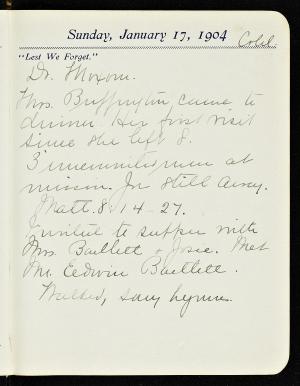 Sunday, January 17, 1904 Cold.
"Lest We Forget."
Dr. Moxom.
Mrs. Buffington came to
dinner. Her first visit
since she left S.
3 men at
mission. Jr still away.
Matt. 8:14-27.
Invited to supper with
Mrs. Bartlett & Josie. Met
Mr. Edwin Bartlett.
Walked, sang hymns.